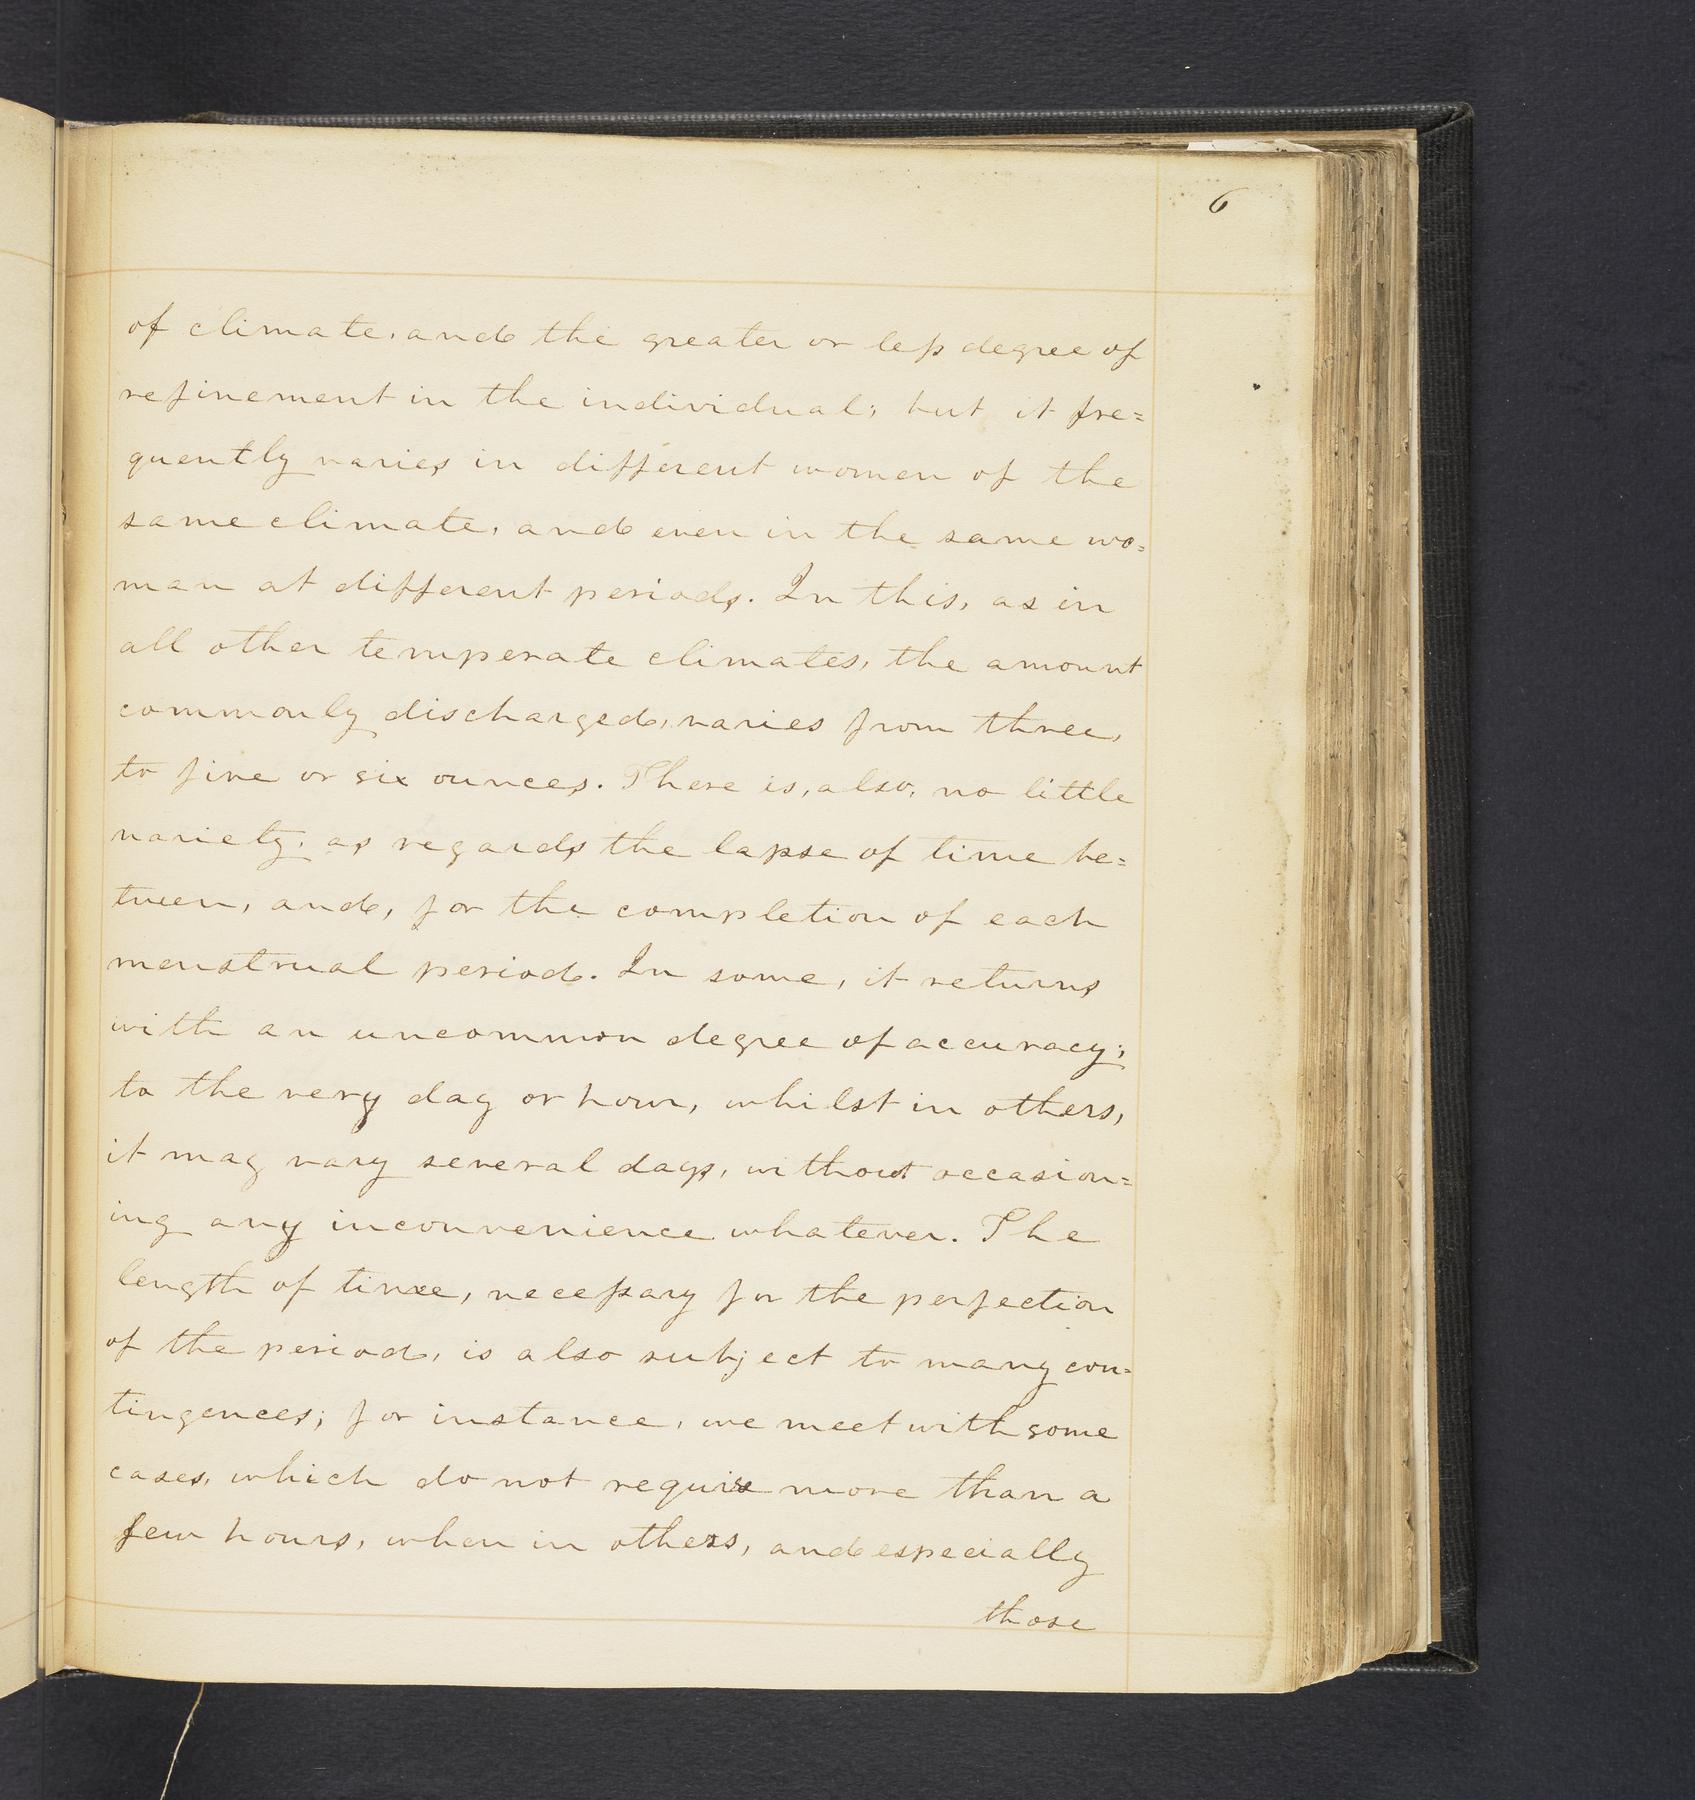 6
of climate, and the greater or less degree of
refinement in the individual; but it fre=
quently varies in different women of the
same climate, and even in the same wo=
man at different periods. In this, as in
all other temperate climates, the amount
commonly discharged, varies from three,
to five or six ounces. There is, also, no little
variety; as regards the lapse of time be=
tween, and, for the completion of each
menstrual period. In some, it returns
with an uncommon degree of accuracy;
to the very day or hour, whilst in others,
it may vary several days, without occasion=
ing any inconvenience whatever. The
length of time, necessary for the perfection
of the period, is also subject to many con=
tingences; for instance, we meet with some
cases, which do not require more than a
few hours, when in others, and especially
those